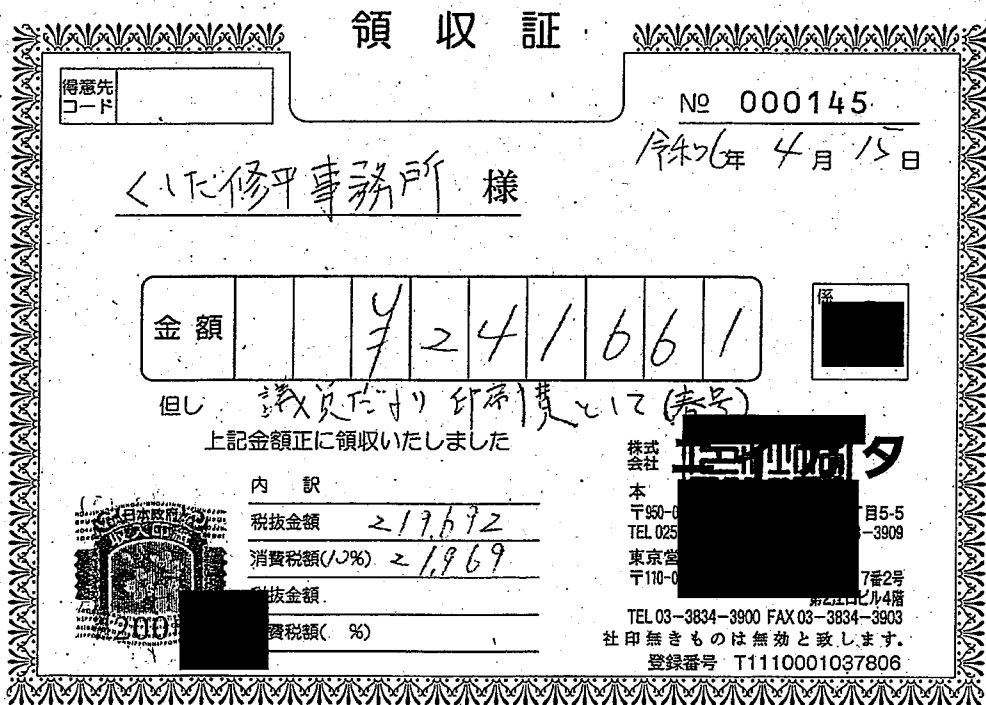 領収証
得意先
コード
№ 000145
令和6年 4月 15日
くした修平事務所 様
金額 ¥241661
係
但し 議員だより 印刷費として(春号)
上記金額正に領収いたしました
株式
会社
タ
内 訳
税抜金額 219,692
消費税額(10%) 21,969
税抜金額
費税額( %)
日本政府
200
本
〒950-0 目5-5
TEL 025 -3909
東京営
〒110-0 7番2号
ビル4階
TEL 03-3834-3900 FAX 03-3834-3903
社印無きものは無効と致します。
登録番号 T1110001037806